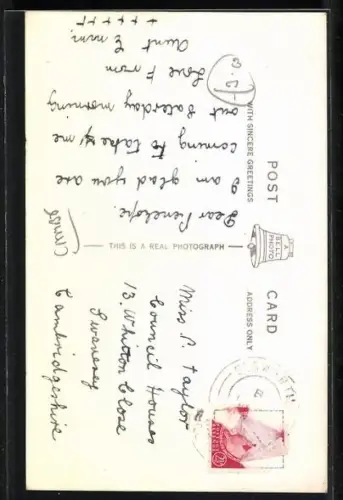 POST CARD
WITH SINCERE GREETINGS
ADDRESS ONLY
A
BELL
PHOTO
THIS IS A REAL PHOTOGRAPH
Dear Penelope
I am glad you are
coming to take me
out Saturday morning
Love From
Aunt Emmi
+ + + + +
Miss P. Taylor
Council Houses
13. Whitton Close
Swavesey
Cambridgeshire